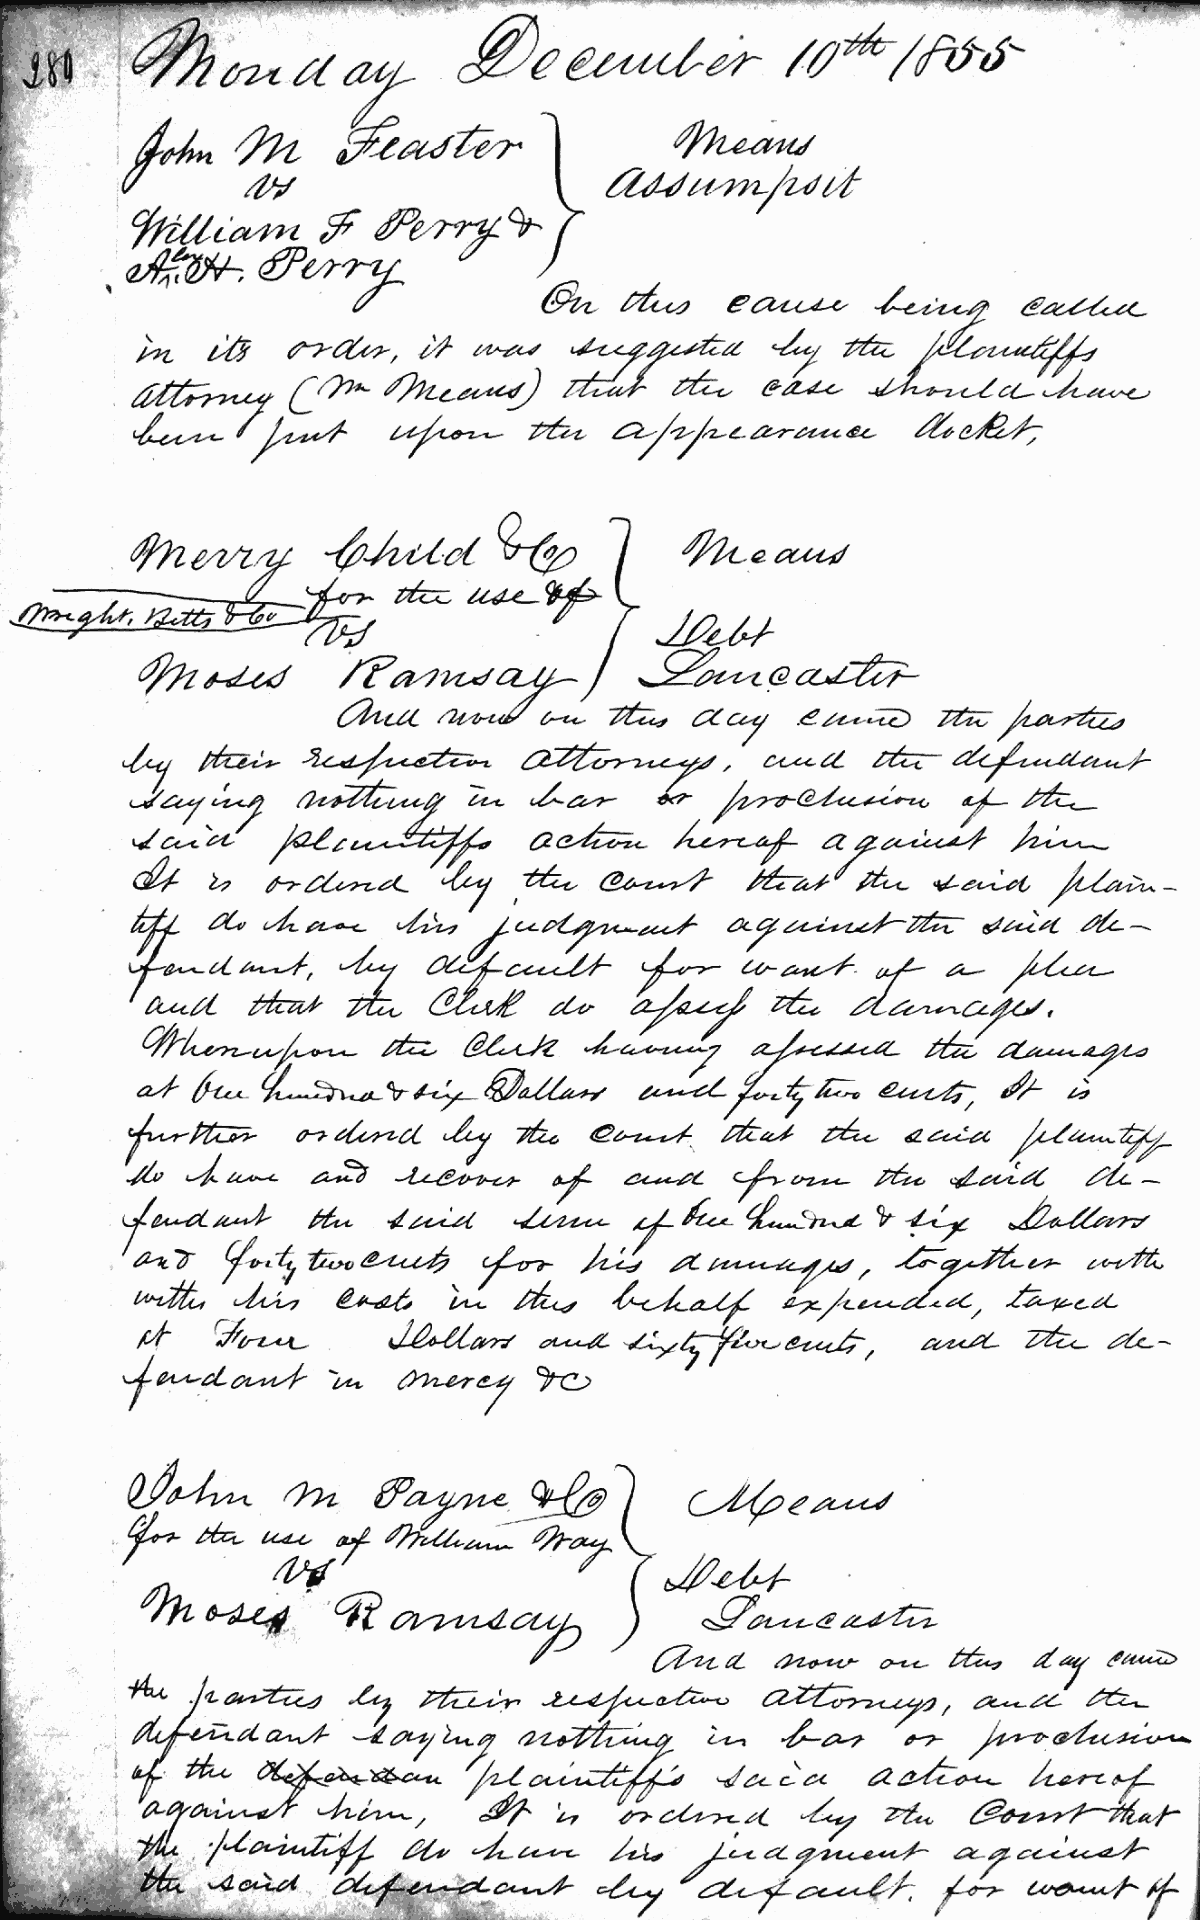 280
Monday December 10th 1855
John M Feaster
Means
vs
Assumpsit
William F Perry &
Alex H. Perry
On this cause being called
in its order, it was suggested by the plaintiffs
attorney (Mr Means) that the case should have
been put upon the appearance docket,
Merry Child & Co
Means
for the use of
Wright, Betts & Co
vs
Debt
Moses Ramsay
Lancaster
And now on this day came the parties
by their respective attorneys, and the defendant
saying nothing in bar or proclusion of the
said plaintiffs action hereof against him
It is ordered by the court that the said plain-
tiff do have his judgment against the said de-
fendant, by default for want of a plea
and that the Clerk do assess the damages.
Whereupon the Clerk having assessed the damages
at One hundred & six Dollars and forty two cents, It is
further ordered by the court that the said plaintiff
do have and recover of and from the said de-
fendant the said sum of One hundred & six Dollars
and forty two cents for his damages, together with
with his costs in this behalf expended, taxed
at Four Dollars and sixty five cents, and the de-
fendant in mercy &c
John M Payne & Co
Means
for the use of William Way
vs
Debt
Moses Ramsay
Lancaster
And now on this day came
the parties by their respective attorneys, and the
defendant saying nothing in bar or proclusion
of the defendan plaintiff's said action hereof
against him, It is ordered by the Court that
the plaintiff do have his judgment against
the said defendant by default, for want of